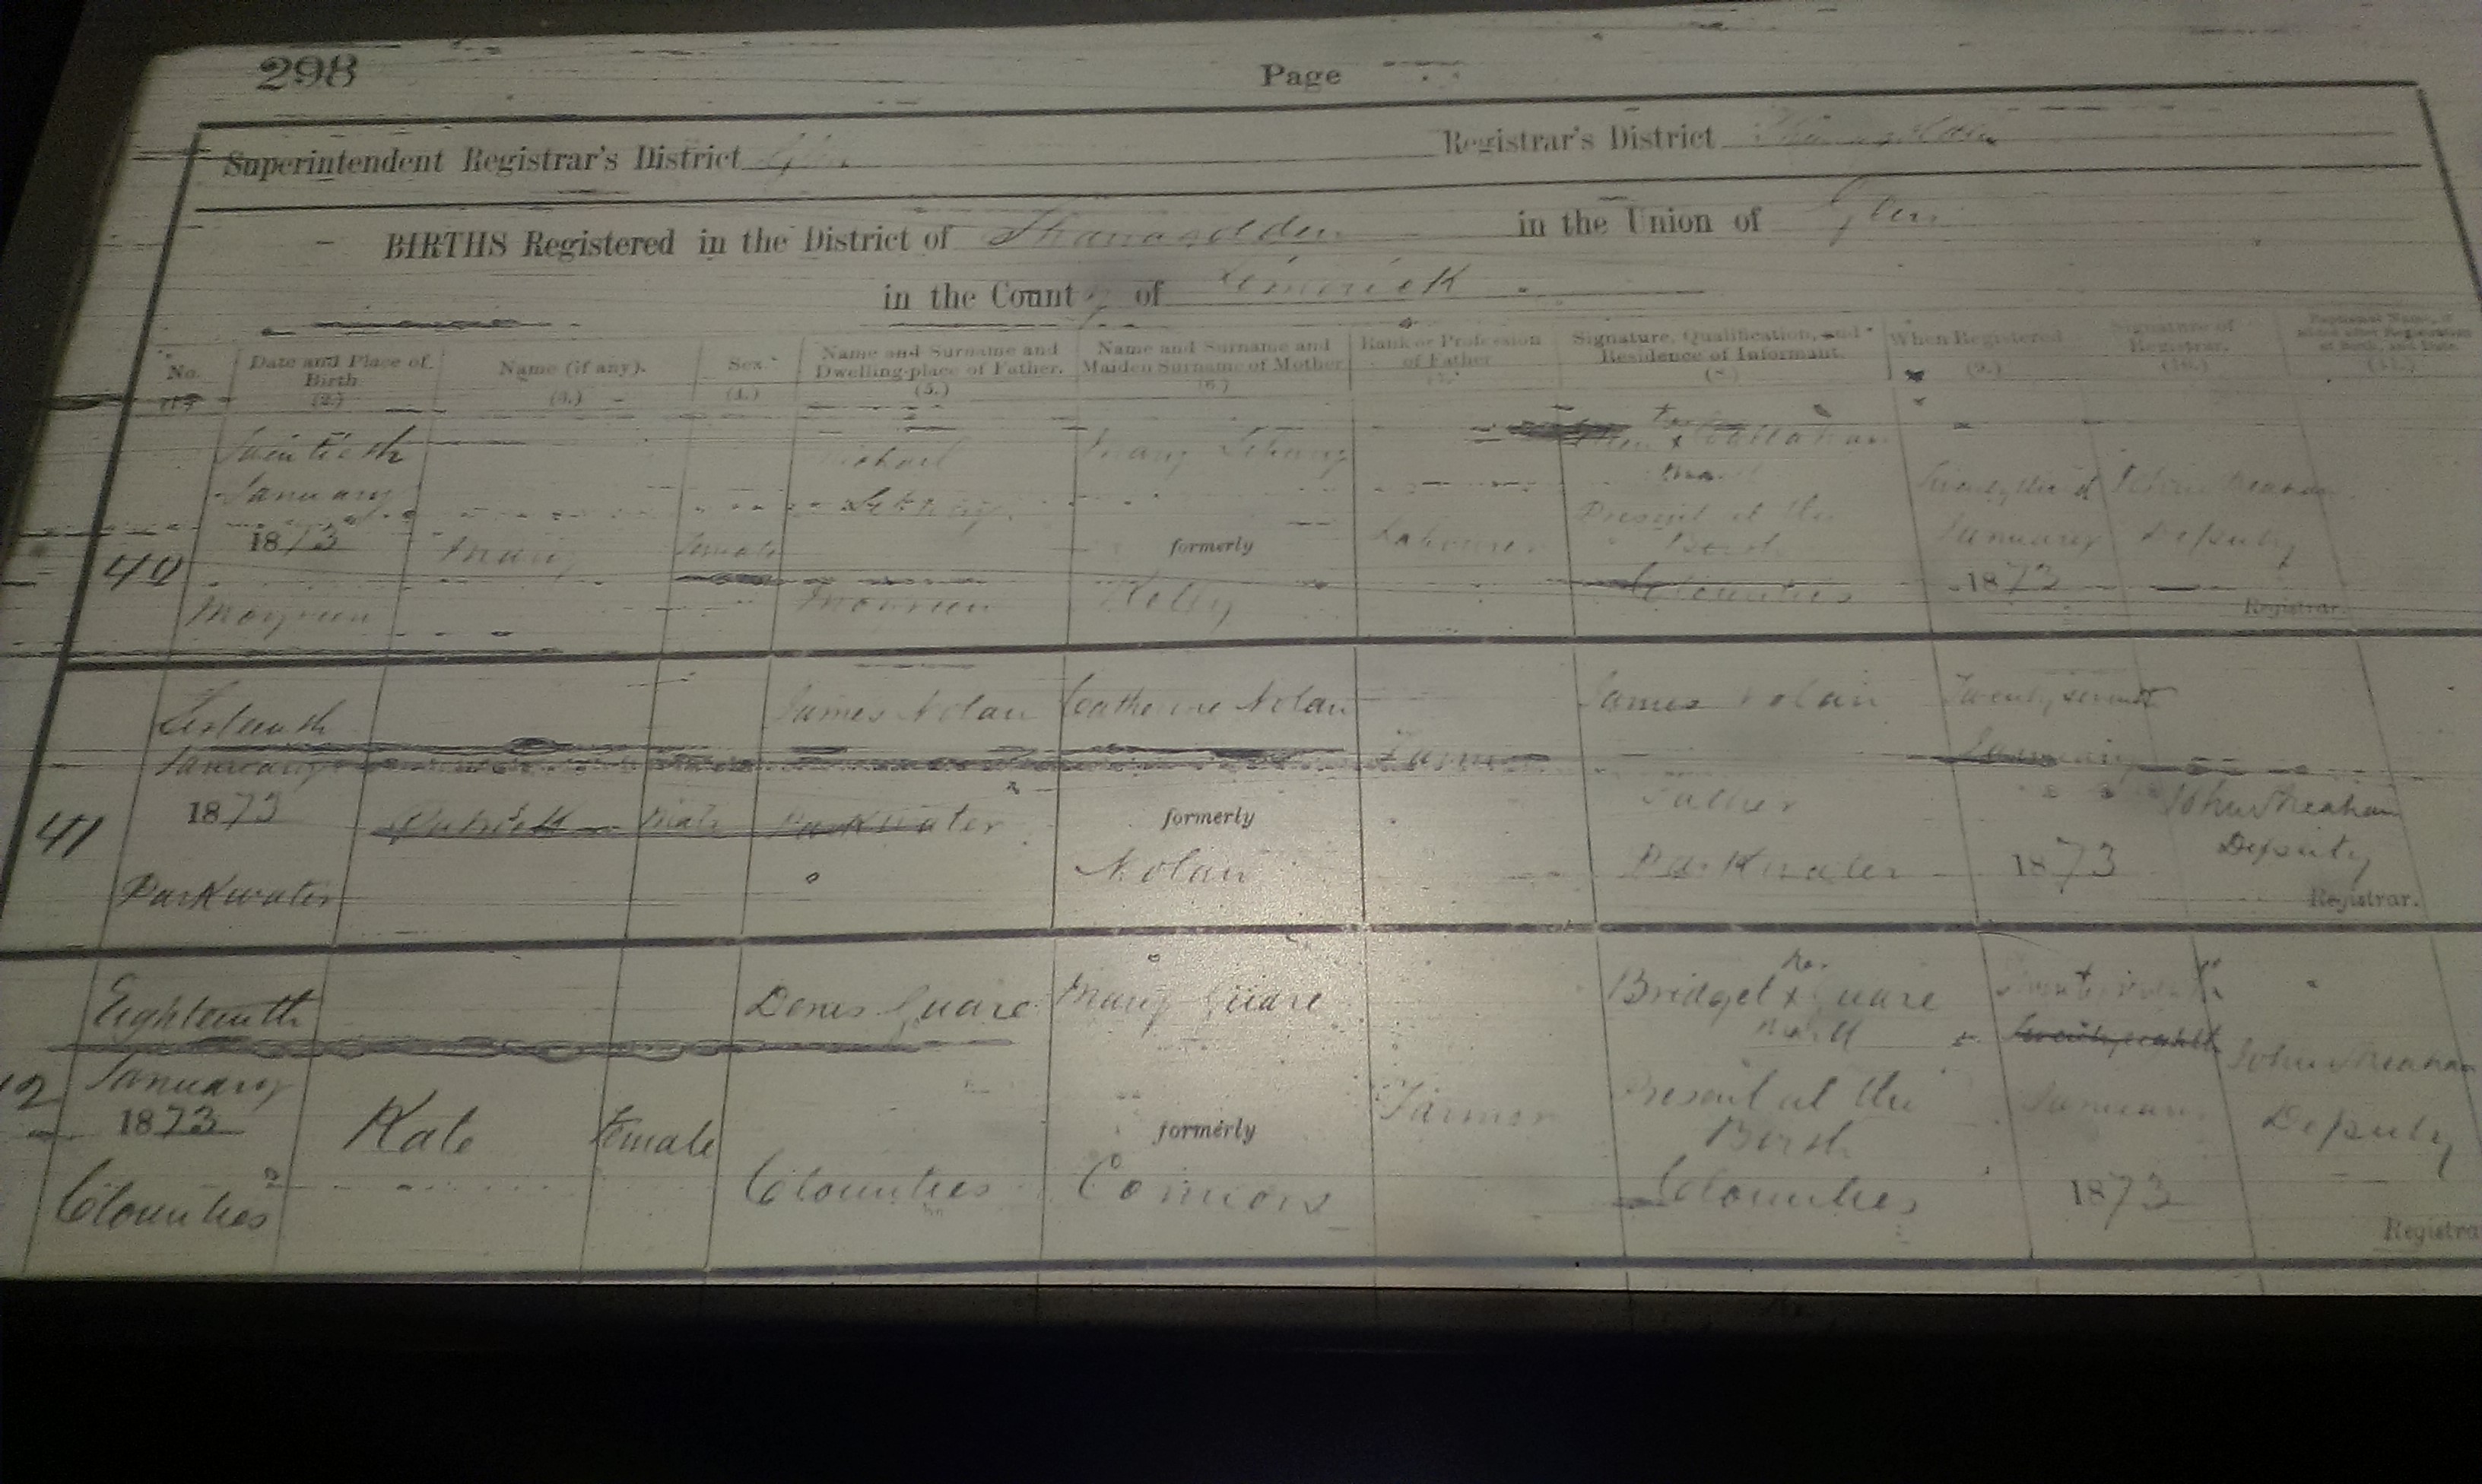 298
Page
Superintendent Registrar's District Glin
Registrar's District Shanagolden
BIRTHS Registered in the District of Shanagolden in the Union of Glin
in the County of Limerick
No. Date and Place of Birth (2.) Name (if any). (3.) Sex. (4.) Name and Surname and Dwelling-place of Father. (5.) Name and Surname and Maiden Surname of Mother (6.) Rank or Profession of Father (7.) Signature, Qualification, and Residence of Informant. (8.) When Registered (9.) Signature of Registrar. (10.) Baptismal Name, if added after Registration of Birth, and Date. (11.)
40
Twentieth
January
1873
Moyreen
Mary
Female
Michael
Moyreen
Mary
formerly
Labourer
her
x Callahan
mark
Present at the
Birth
Clounties
Twenty third
January
1873
John Sheahan
Deputy
Registrar.
41
Sixteenth
January
1873
Parkwater
Patrick
Male
James Nolan
Parkwater
Catherine Nolan
formerly
Nolan
Farmer
James Nolan
Father
Parkwater
Twenty seventh
January
1873
John Sheahan
Deputy
Registrar.
42
Eighteenth
January
1873
Clounties
Kate
Female
Denis Guare
Clounties
Mary Guare
formerly
Connors
Farmer
her
Bridget x Guare
mark
Present at the
Birth
Clounties
January
1873
John Sheahan
Deputy
Registrar